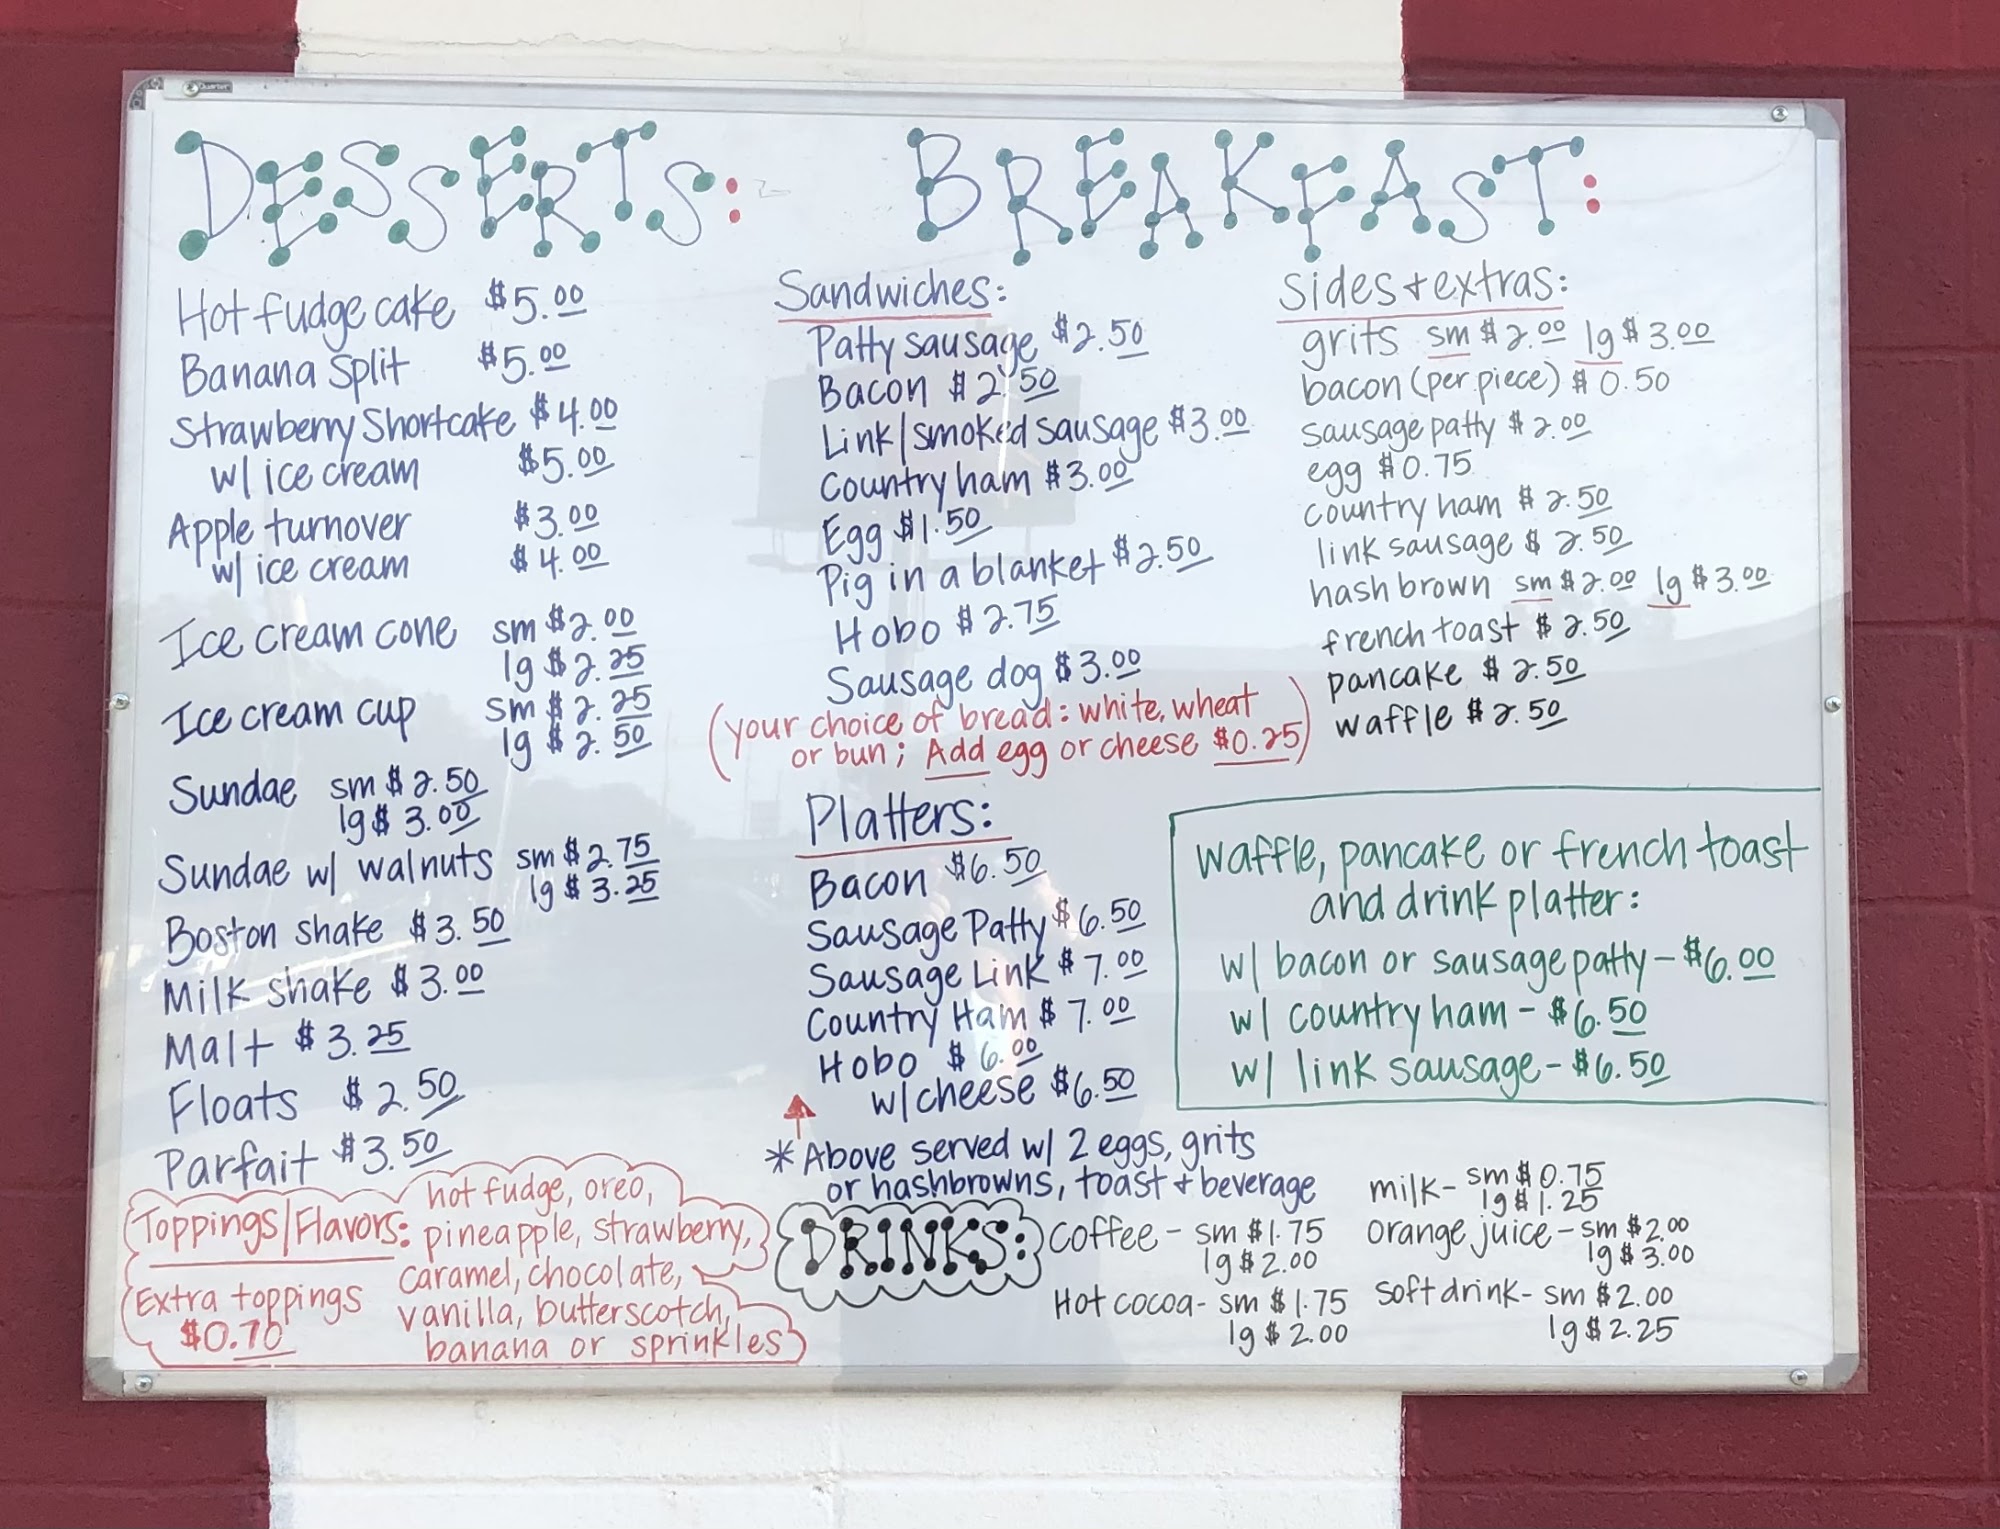 Quartet
DESSERTS:
Hot fudge cake $5.00
Banana Split $5.00
Strawberry Shortcake $4.00
w/ ice cream $5.00
Apple turnover $3.00
w/ ice cream $4.00
Ice cream cone sm $2.00
lg $2.25
Ice cream cup sm $2.25
lg $2.50
Sundae sm $2.50
lg $3.00
Sundae w/ walnuts sm $2.75
lg $3.25
Boston shake $3.50
Milk shake $3.00
Malt $3.25
Floats $2.50
Parfait $3.50
Toppings/Flavors: hot fudge, oreo,
pineapple, strawberry,
caramel, chocolate,
vanilla, butterscotch,
banana or sprinkles
Extra toppings
$0.70
BREAKFAST:
Sandwiches:
Patty sausage $2.50
Bacon $2.50
Link/smoked sausage $3.00
Country ham $3.00
Egg $1.50
Pig in a blanket $2.50
Hobo $2.75
Sausage dog $3.00
(your choice of bread: white, wheat
or bun; Add egg or cheese $0.25)
Platters:
Bacon $6.50
Sausage Patty $6.50
Sausage Link $7.00
Country Ham $7.00
Hobo $6.00
w/ cheese $6.50
*Above served w/ 2 eggs, grits
or hashbrowns, toast + beverage
sides + extras:
grits sm $2.00 lg $3.00
bacon (per piece) $0.50
sausage patty $2.00
egg $0.75
country ham $2.50
link sausage $2.50
hash brown sm $2.00 lg $3.00
french toast $2.50
pancake $2.50
waffle $2.50
waffle, pancake or french toast
and drink platter:
w/ bacon or sausage patty - $6.00
w/ country ham - $6.50
w/ link sausage - $6.50
DRINKS:
coffee - sm $1.75
lg $2.00
Hot cocoa - sm $1.75
lg $2.00
milk - sm $0.75
lg $1.25
orange juice - sm $2.00
lg $3.00
soft drink - sm $2.00
lg $2.25